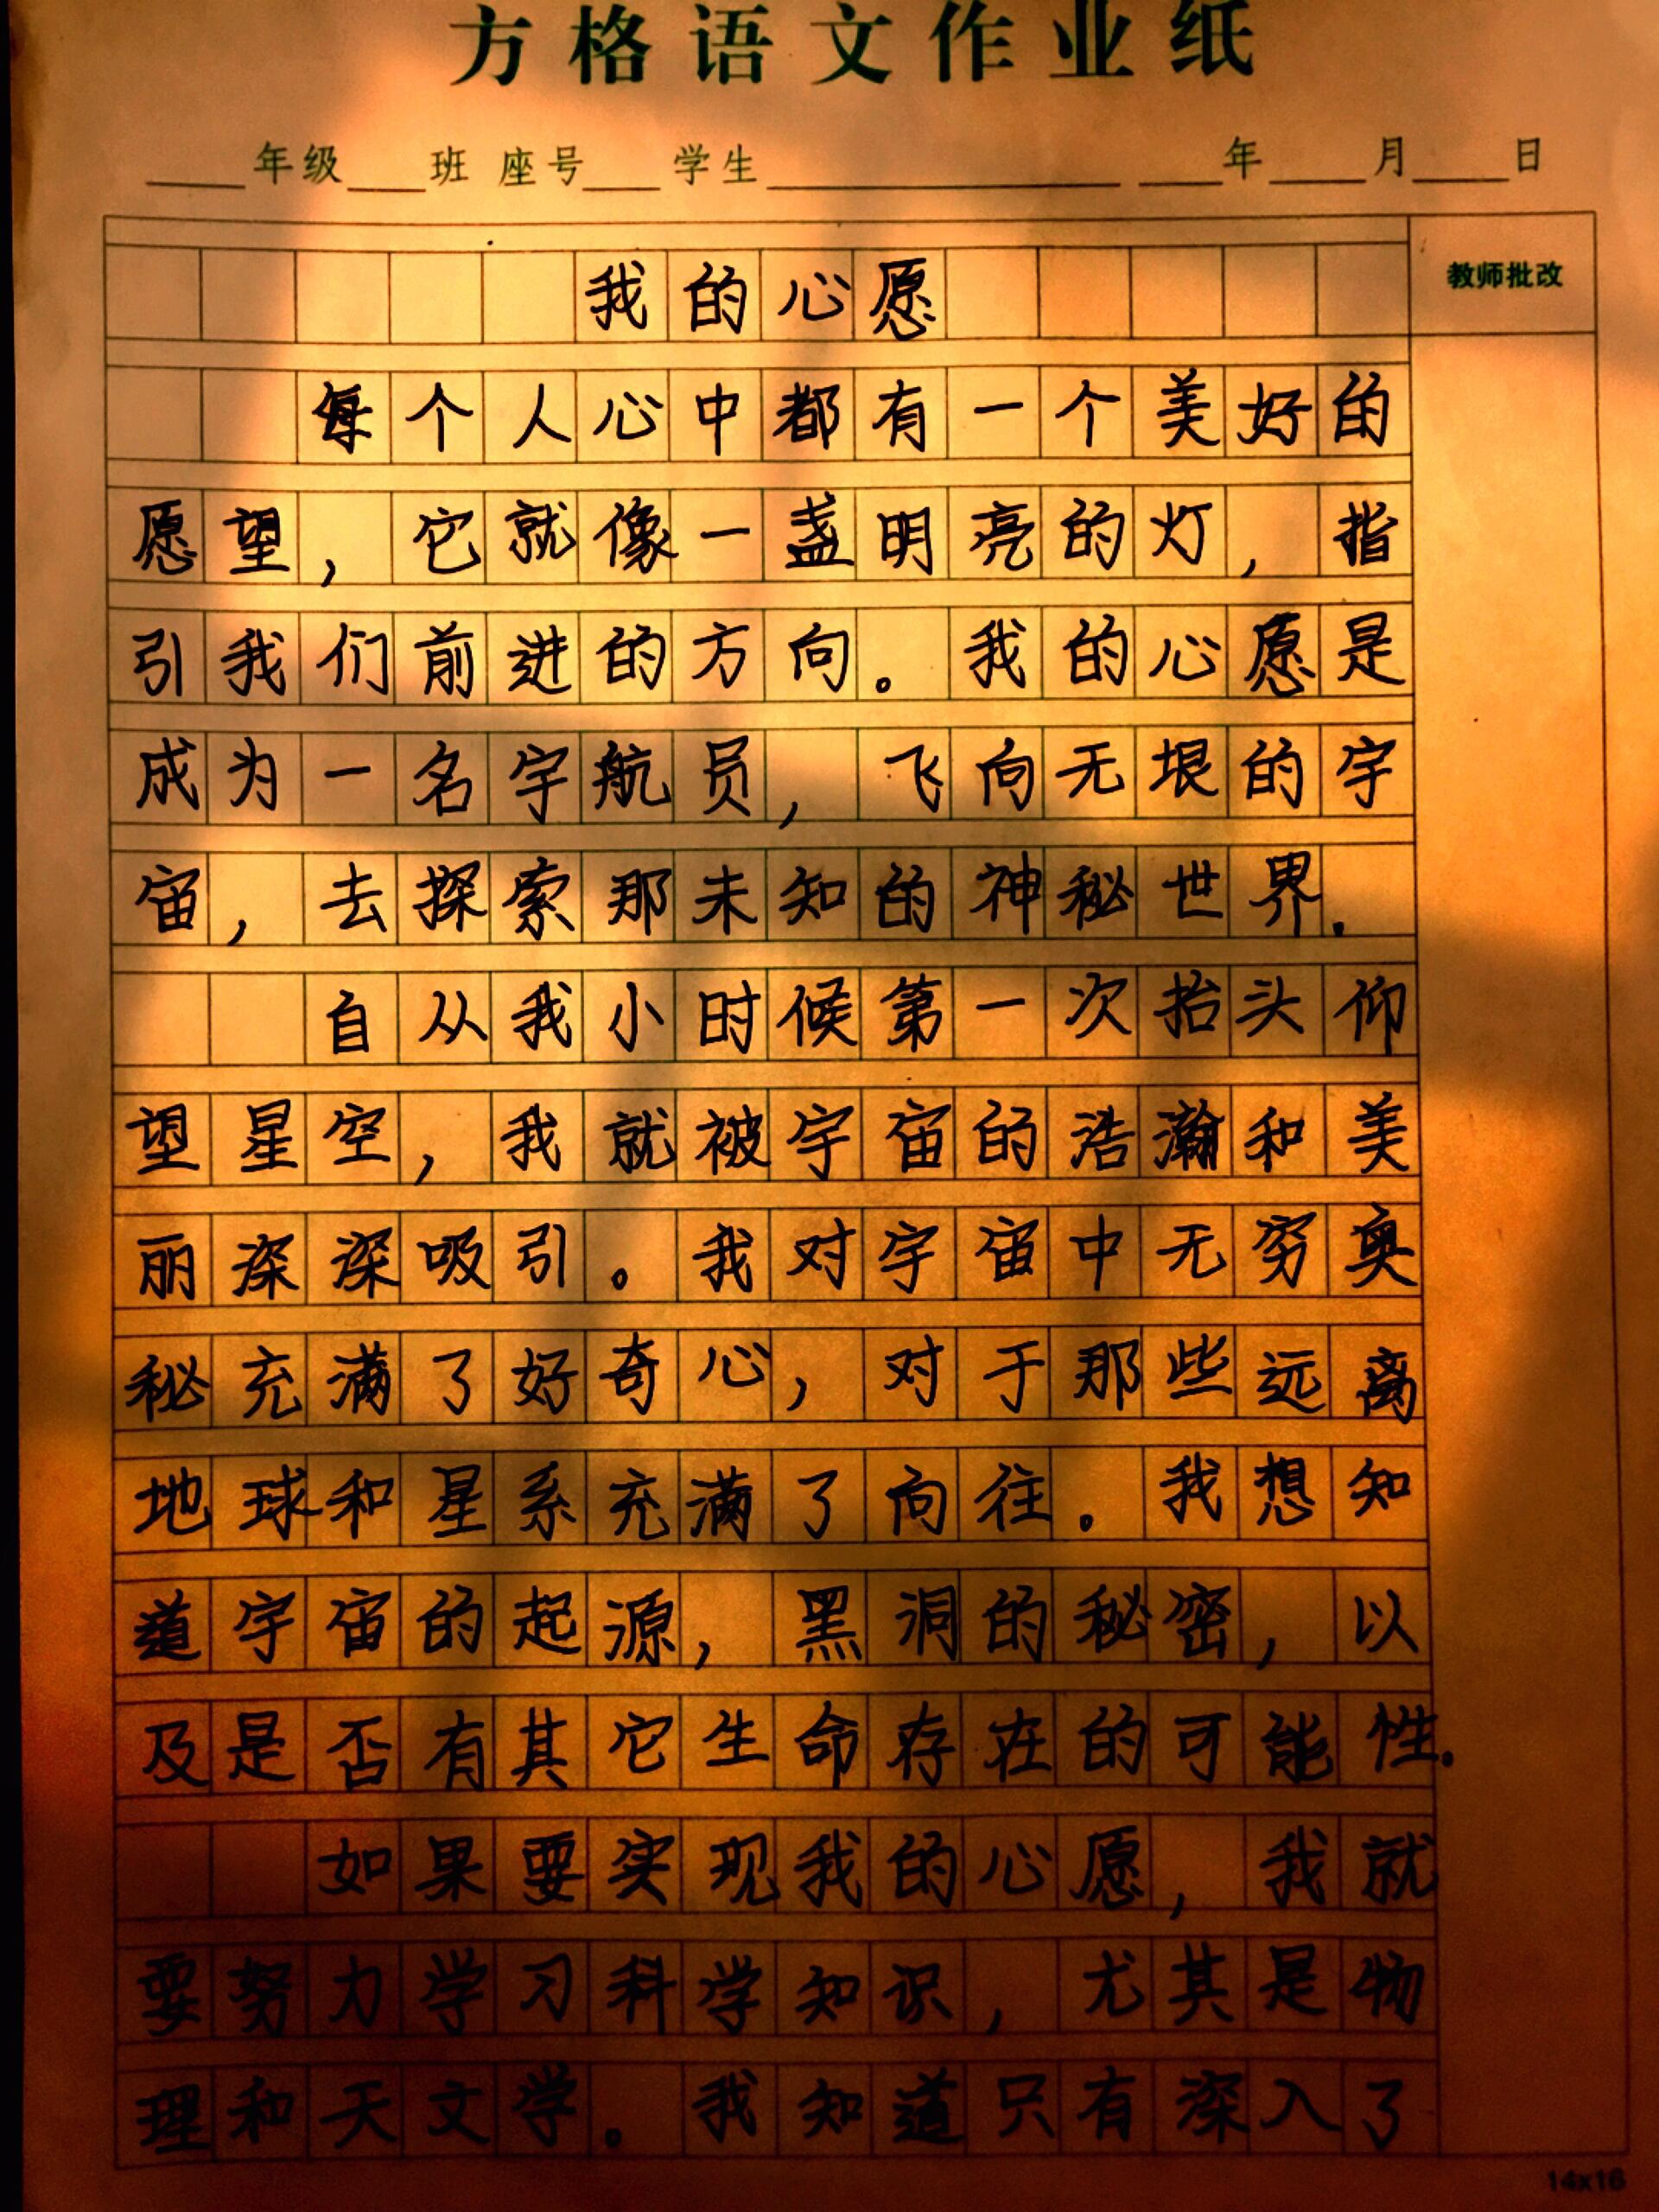 方格语文作业纸
____年级___班 座号___学生______________ ___年____月____日
教师批改
我的心愿
每个人心中都有一个美好的
愿望，它就像一盏明亮的灯，指
引我们前进的方向。我的心愿是
成为一名宇航员，飞向无垠的宇
宙，去探索那未知的神秘世界.
自从我小时候第一次抬头仰
望星空，我就被宇宙的浩瀚和美
丽深深吸引。我对宇宙中无穷奥
秘充满了好奇心，对于那些远离
地球和星系充满了向往。我想知
道宇宙的起源，黑洞的秘密，以
及是否有其它生命存在的可能性.
如果要实现我的心愿，我就
要努力学习科学知识，尤其是物
理和天文学。我知道只有深入了
14x16